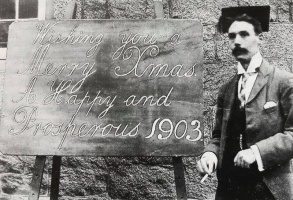 Wishing you a
Merry Xmas.
A Happy and
Prosperous 1903.